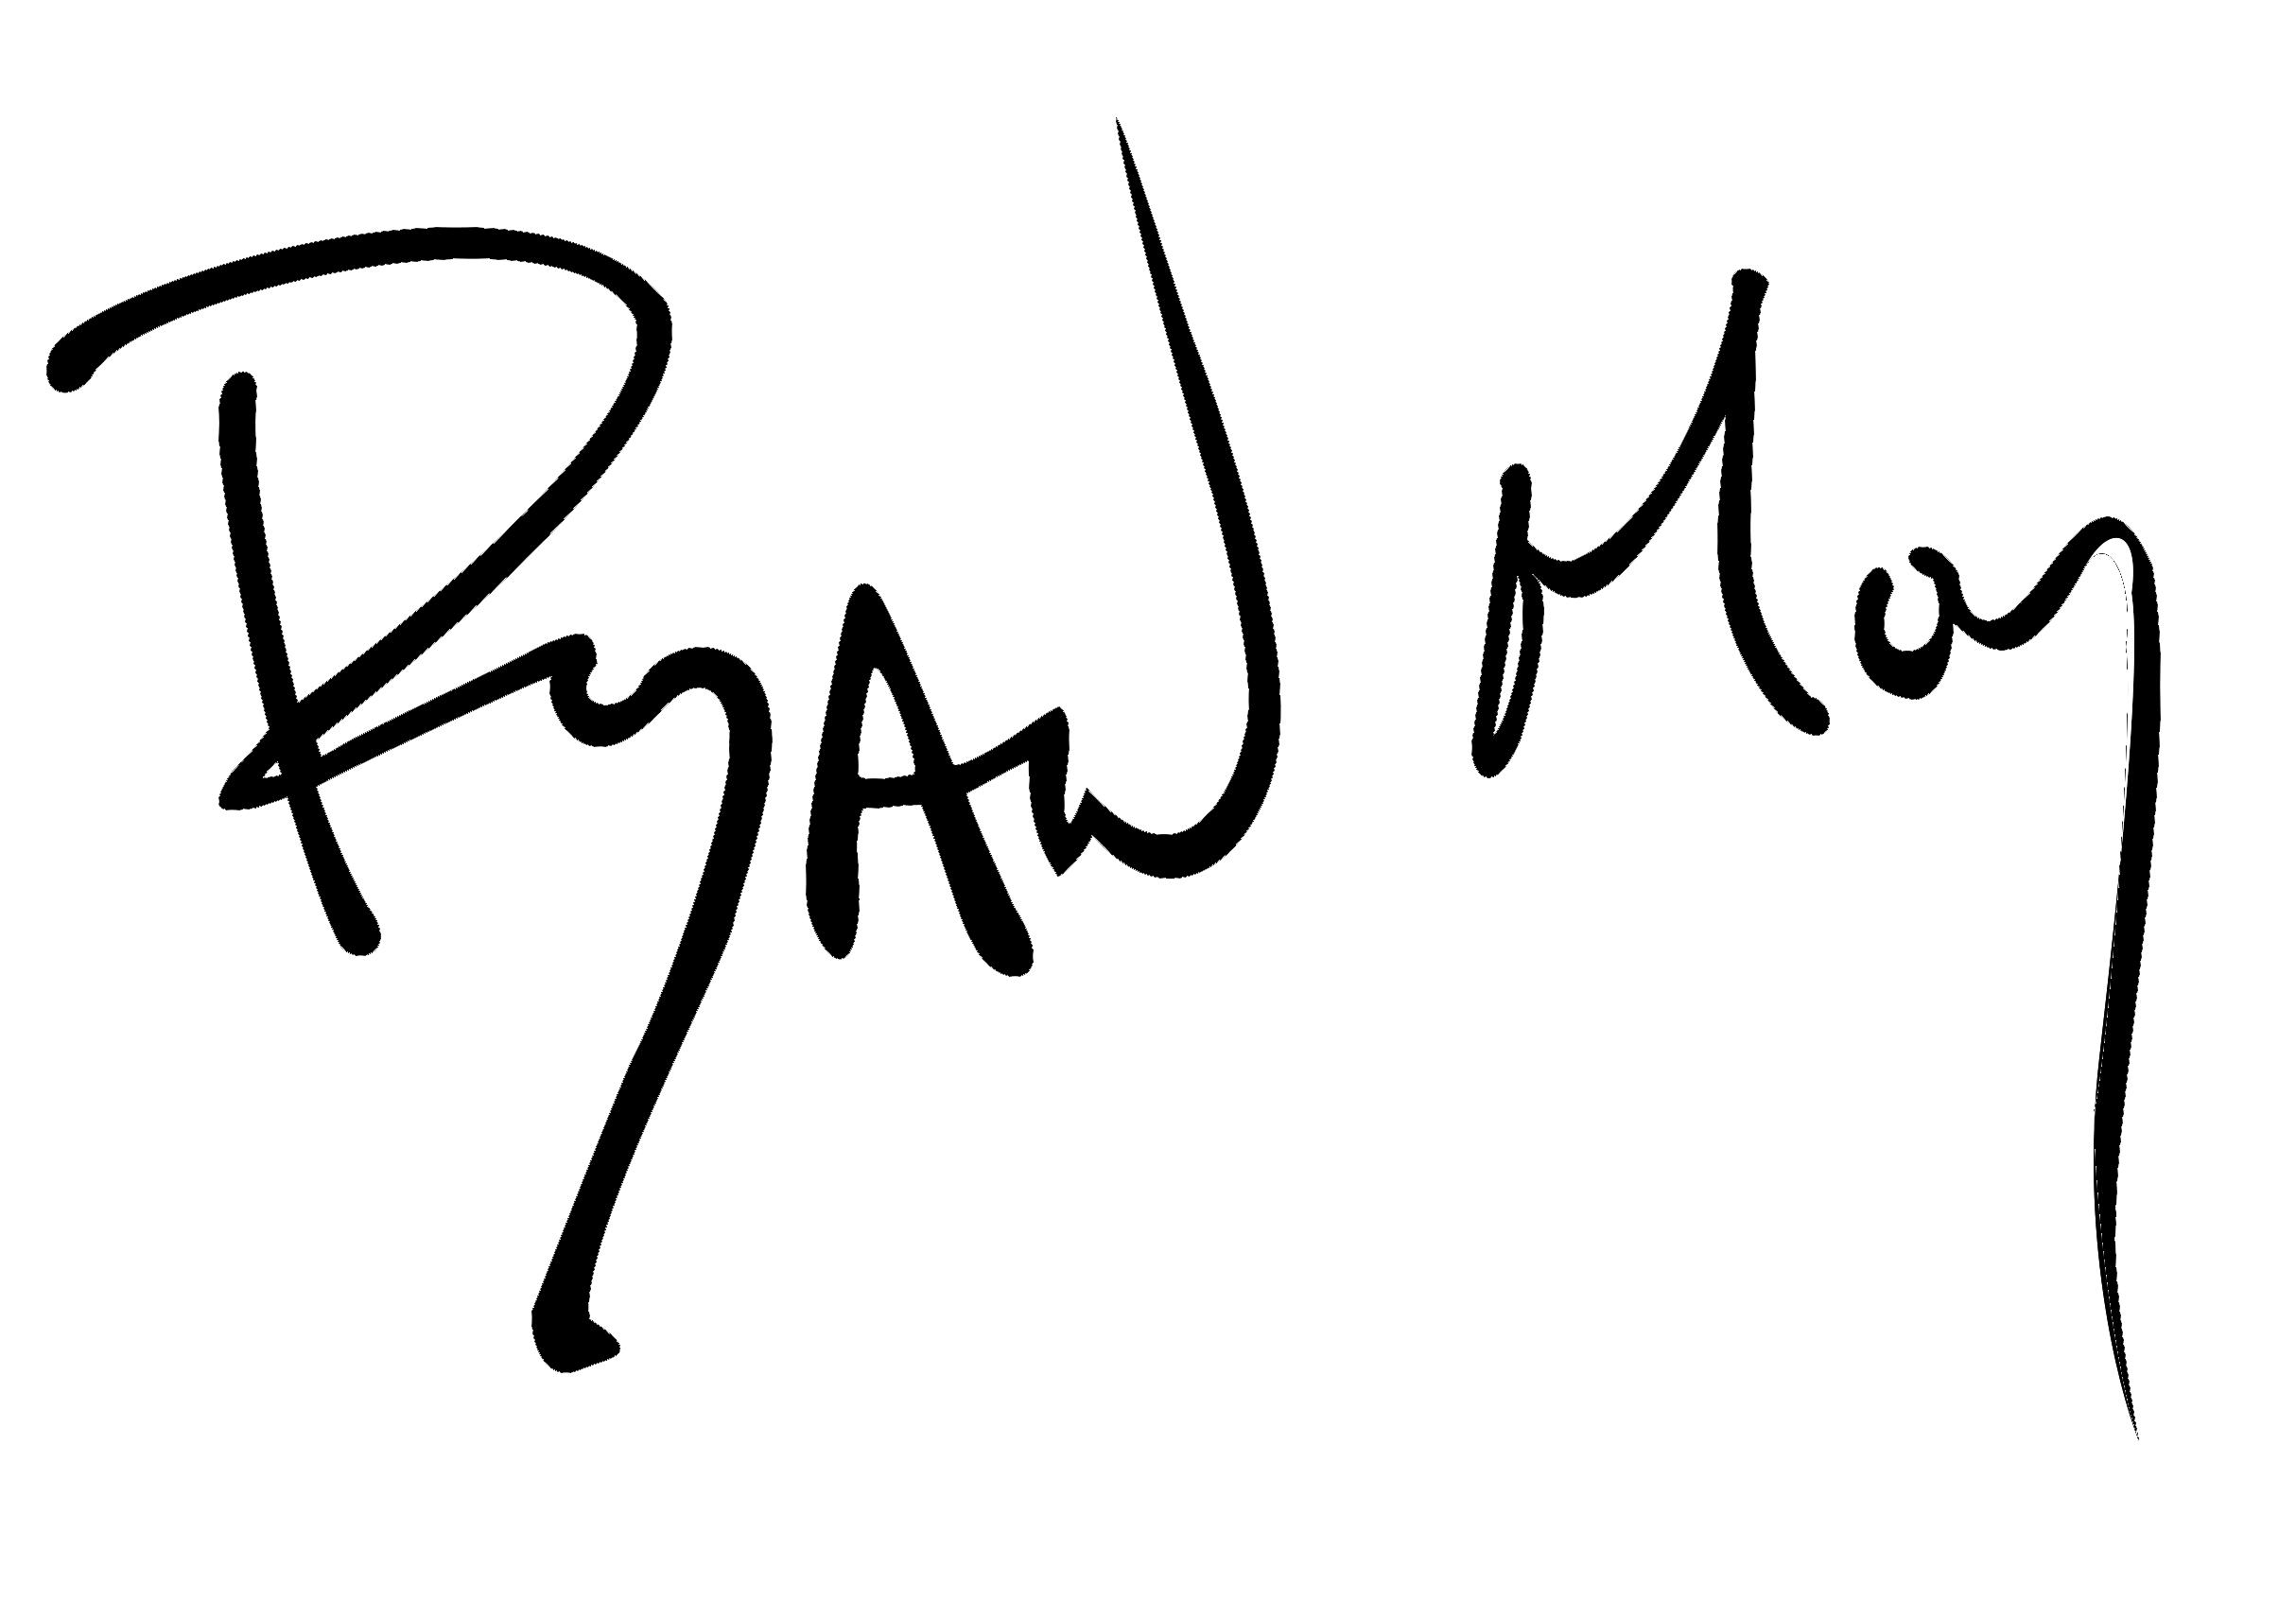 Ryan May